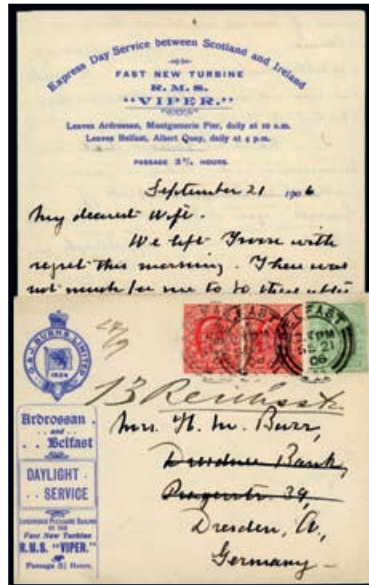 Express Day Service between Scotland and Ireland
FAST NEW TURBINE
R.M.S.
"VIPER."
Leaves Ardrossan, Montgomerie Pier, daily at 10 a.m.
Leaves Belfast, Albert Quay, daily at 4 p.m.
PASSAGE 3½ HOURS.
September 21 1906
My dearest Wife.
We left Troon with
regret this morning. There was
not much for me to do
G. & J. BURNS LIMITED
1824
BELFAST
SE 21
06
Ardrossan
and
Belfast
DAYLIGHT
SERVICE
Fast New Turbine
R.M.S. "VIPER."
Passage 3½ Hours.
13
Mrs. H. M. Burr,
Dresdner Bank,
Pragerstr. 39,
Dresden, A,
Germany